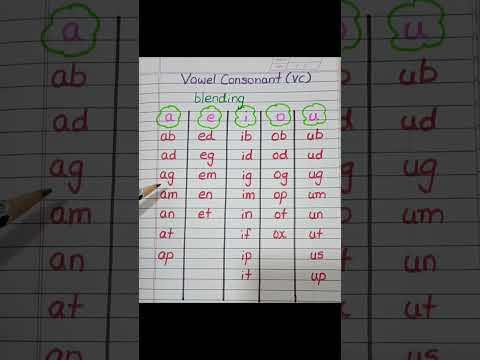 a
ab
ad
ag
am
an
at
ap
Vowel Consonant (VC)
blending
a e i o u
ab ed ib ob ub
ad eg id od ud
ag em ig og ug
am en im op um
an et in ot un
at if ox ut
ap ip us
it up
u
ub
ud
ug
um
un
ut
us